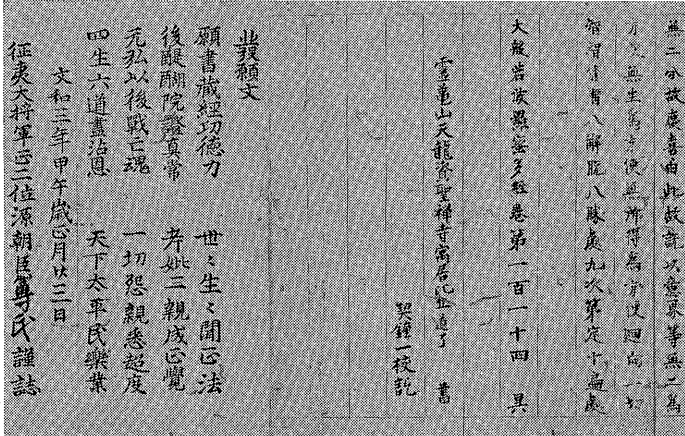 無二分故慶喜由此故說以意界等無二為
方便無生為方便無所得為方便迴向一切
智智修習八解脫八勝處九次第定十遍處
大般若波羅蜜多經卷第一百一十四 具
靈龜山天龍資聖禪寺寓居比丘道了 書
契鍾一校訖
發願文
願書藏經功德力 世々生々聞正法
後醍醐院證真常 考妣二親成正覺
元弘以後戰亡魂 一切怨親悉超度
四生六道盡沾恩 天下太平民樂業
文和三年甲午歲正月廿三日
征夷大将軍正二位源朝臣尊氏謹誌